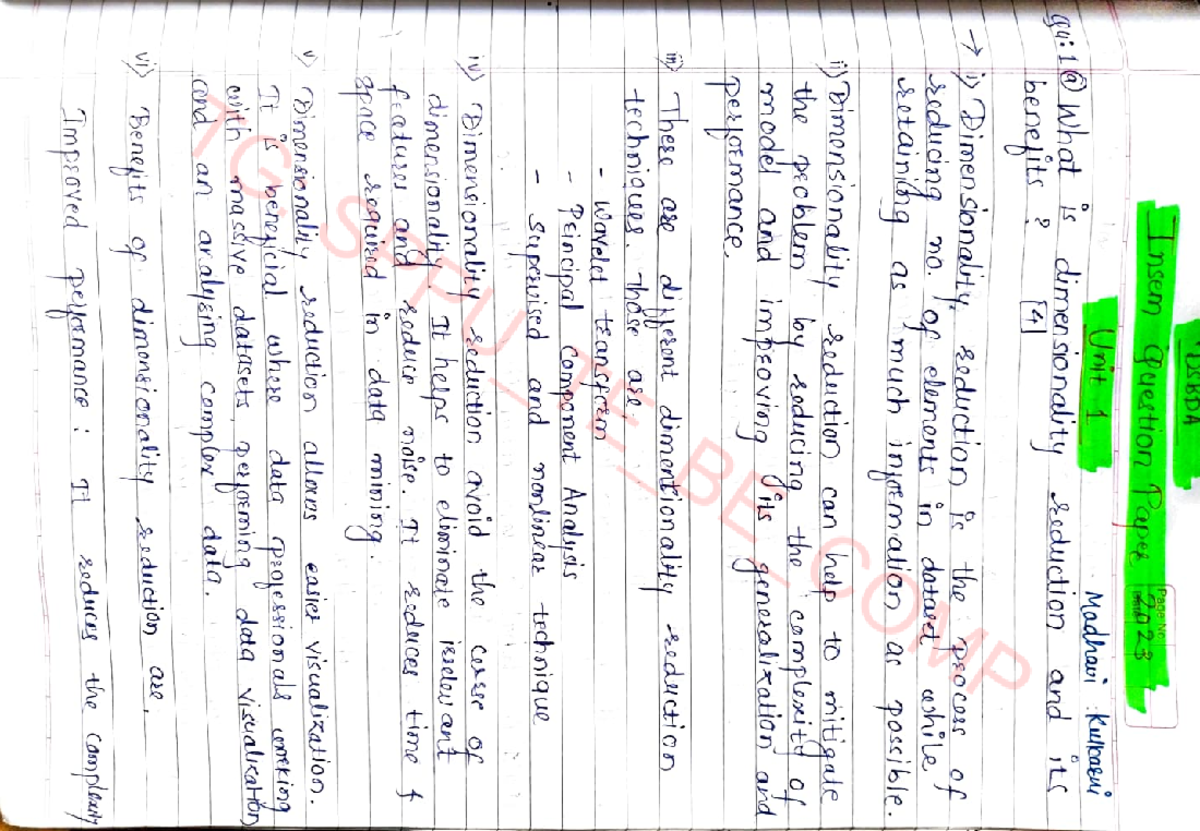 DSBDA
Page No.
Insem Question Paper 2023
Unit 1
Madhavi Kulkarni
Qu: 1 a) What is dimensionality reduction and its
benefits ? [4]
→ i) Dimensionality reduction is the process of
reducing no. of elements in dataset while
retaining as much information as possible.
ii) Dimensionality reduction can help to mitigate
the problem by reducing the complexity of
model and improving its generalization and
performance.
iii) There are different dimentionality reduction
techniques. those are
- Wavelet transform
- Principal Component Analysis
- Supervised and nonlinear technique
iv) Dimensionality reduction avoid the curse of
dimensionality. It helps to eliminate irrelevant
features and reduce noise. It reduces time &
space required in data mining.
v) Dimensionality reduction allows easier visualization.
It is beneficial where data professionals working
with massive datasets, performing data visualisation
and an analysing complex data.
vi) Benefits of dimensionality reduction are,
Improved performance : It reduces the complexity
TG: SPPU_TE_BE_COMP